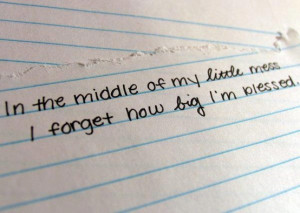 In the middle of my little mess
I forget how big I'm blessed.